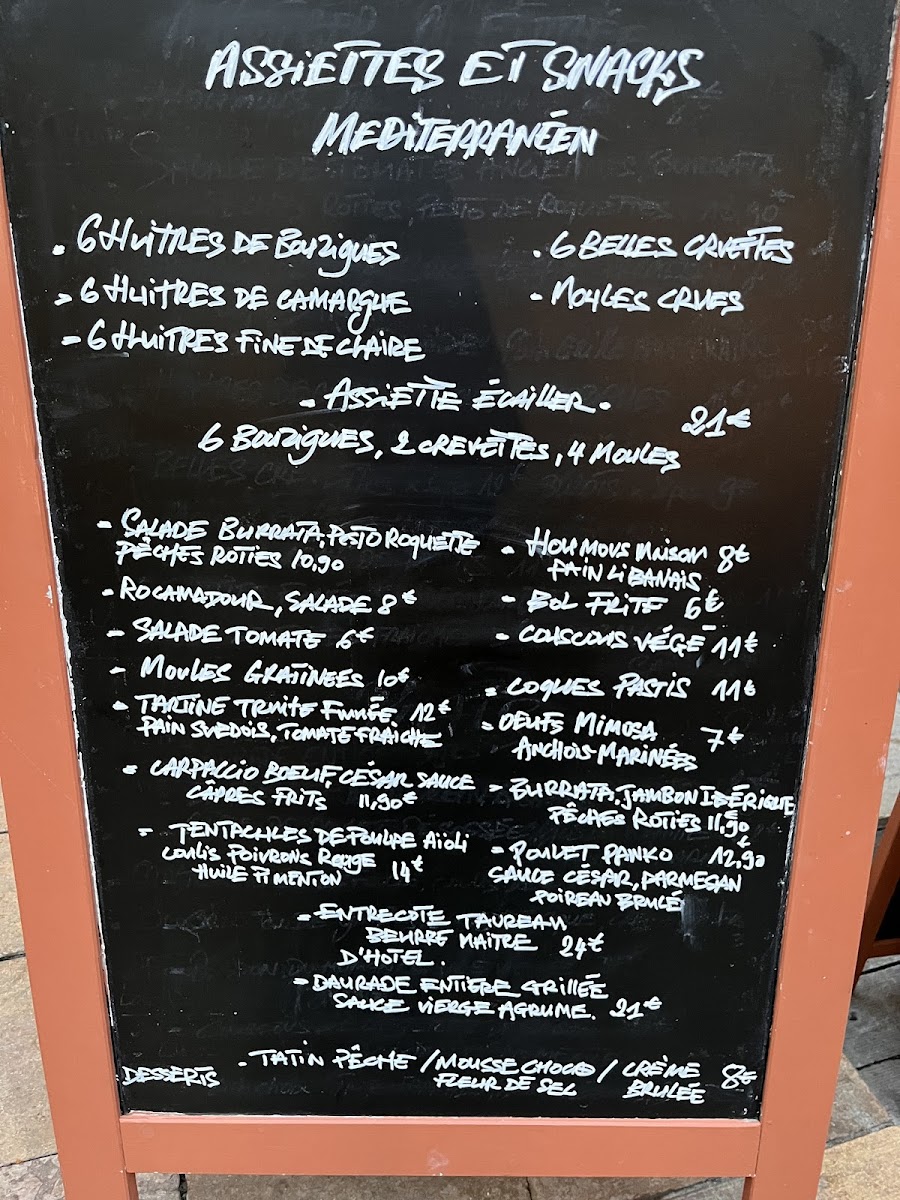 ASSiETTES ET SNACKS
MEDiTERRANÉEN
. 6 HuiTRES DE Bouzigues
- 6 HuiTRES DE CAMARGUE
- 6 HuiTRES FiNE DE CLAiRE
. 6 BELLES CRVETTES
- MOULES CRUES
- ASSiETTE ÉCAiLLER -
21€
6 Bouzigues, 2 CREVETTES, 4 MOULES
- SALADE BURRATA, PESTO ROQUETTE
PÊCHES ROTiES 10,90
- ROCAMADOUR, SALADE 8€
- SALADE TOMATE 6€
- MOULES GRATiNEES 10€
- TARTiNE TRUiTE FUMÉE 12€
PAiN SUEDOiS, TOMATE FRAiCHE
- CARPACCiO BOEUF, CÉSAR SAUCE
CÂPRES FRiTS 11,90€
- TENTACULES DE POULPE Aïoli
COULiS POiVRONS ROUGE
HUiLE PiMENTON 14€
- HOUMOUS MAiSON 8€
PAiN LiBANAiS
- BOL FRiTE 6€
- COUSCOUS VÉGÉ 11€
- COQUES PASTiS 11€
- OEUFS MiMOSA 7€
ANCHOiS MARiNÉES
- BURRATA, JAMBON IBÉRiQUE
PÊCHES ROTiES 11,90€
- POULET PANKO 12,90€
SAUCE CÉSAR, PARMESAN
POiREAU BRULÉ
- ENTRECOTE TAUREAU
BEURRE MAiTRE 24€
D'HOTEL.
- DAURADE ENTiERE GRiLLÉE
SAUCE ViERGE AGRUME. 21€
DESSERTS - TATiN PÊCHE / MOUSSE CHOCO / CRÈME 8€
FLEUR DE SEL BRULÉE